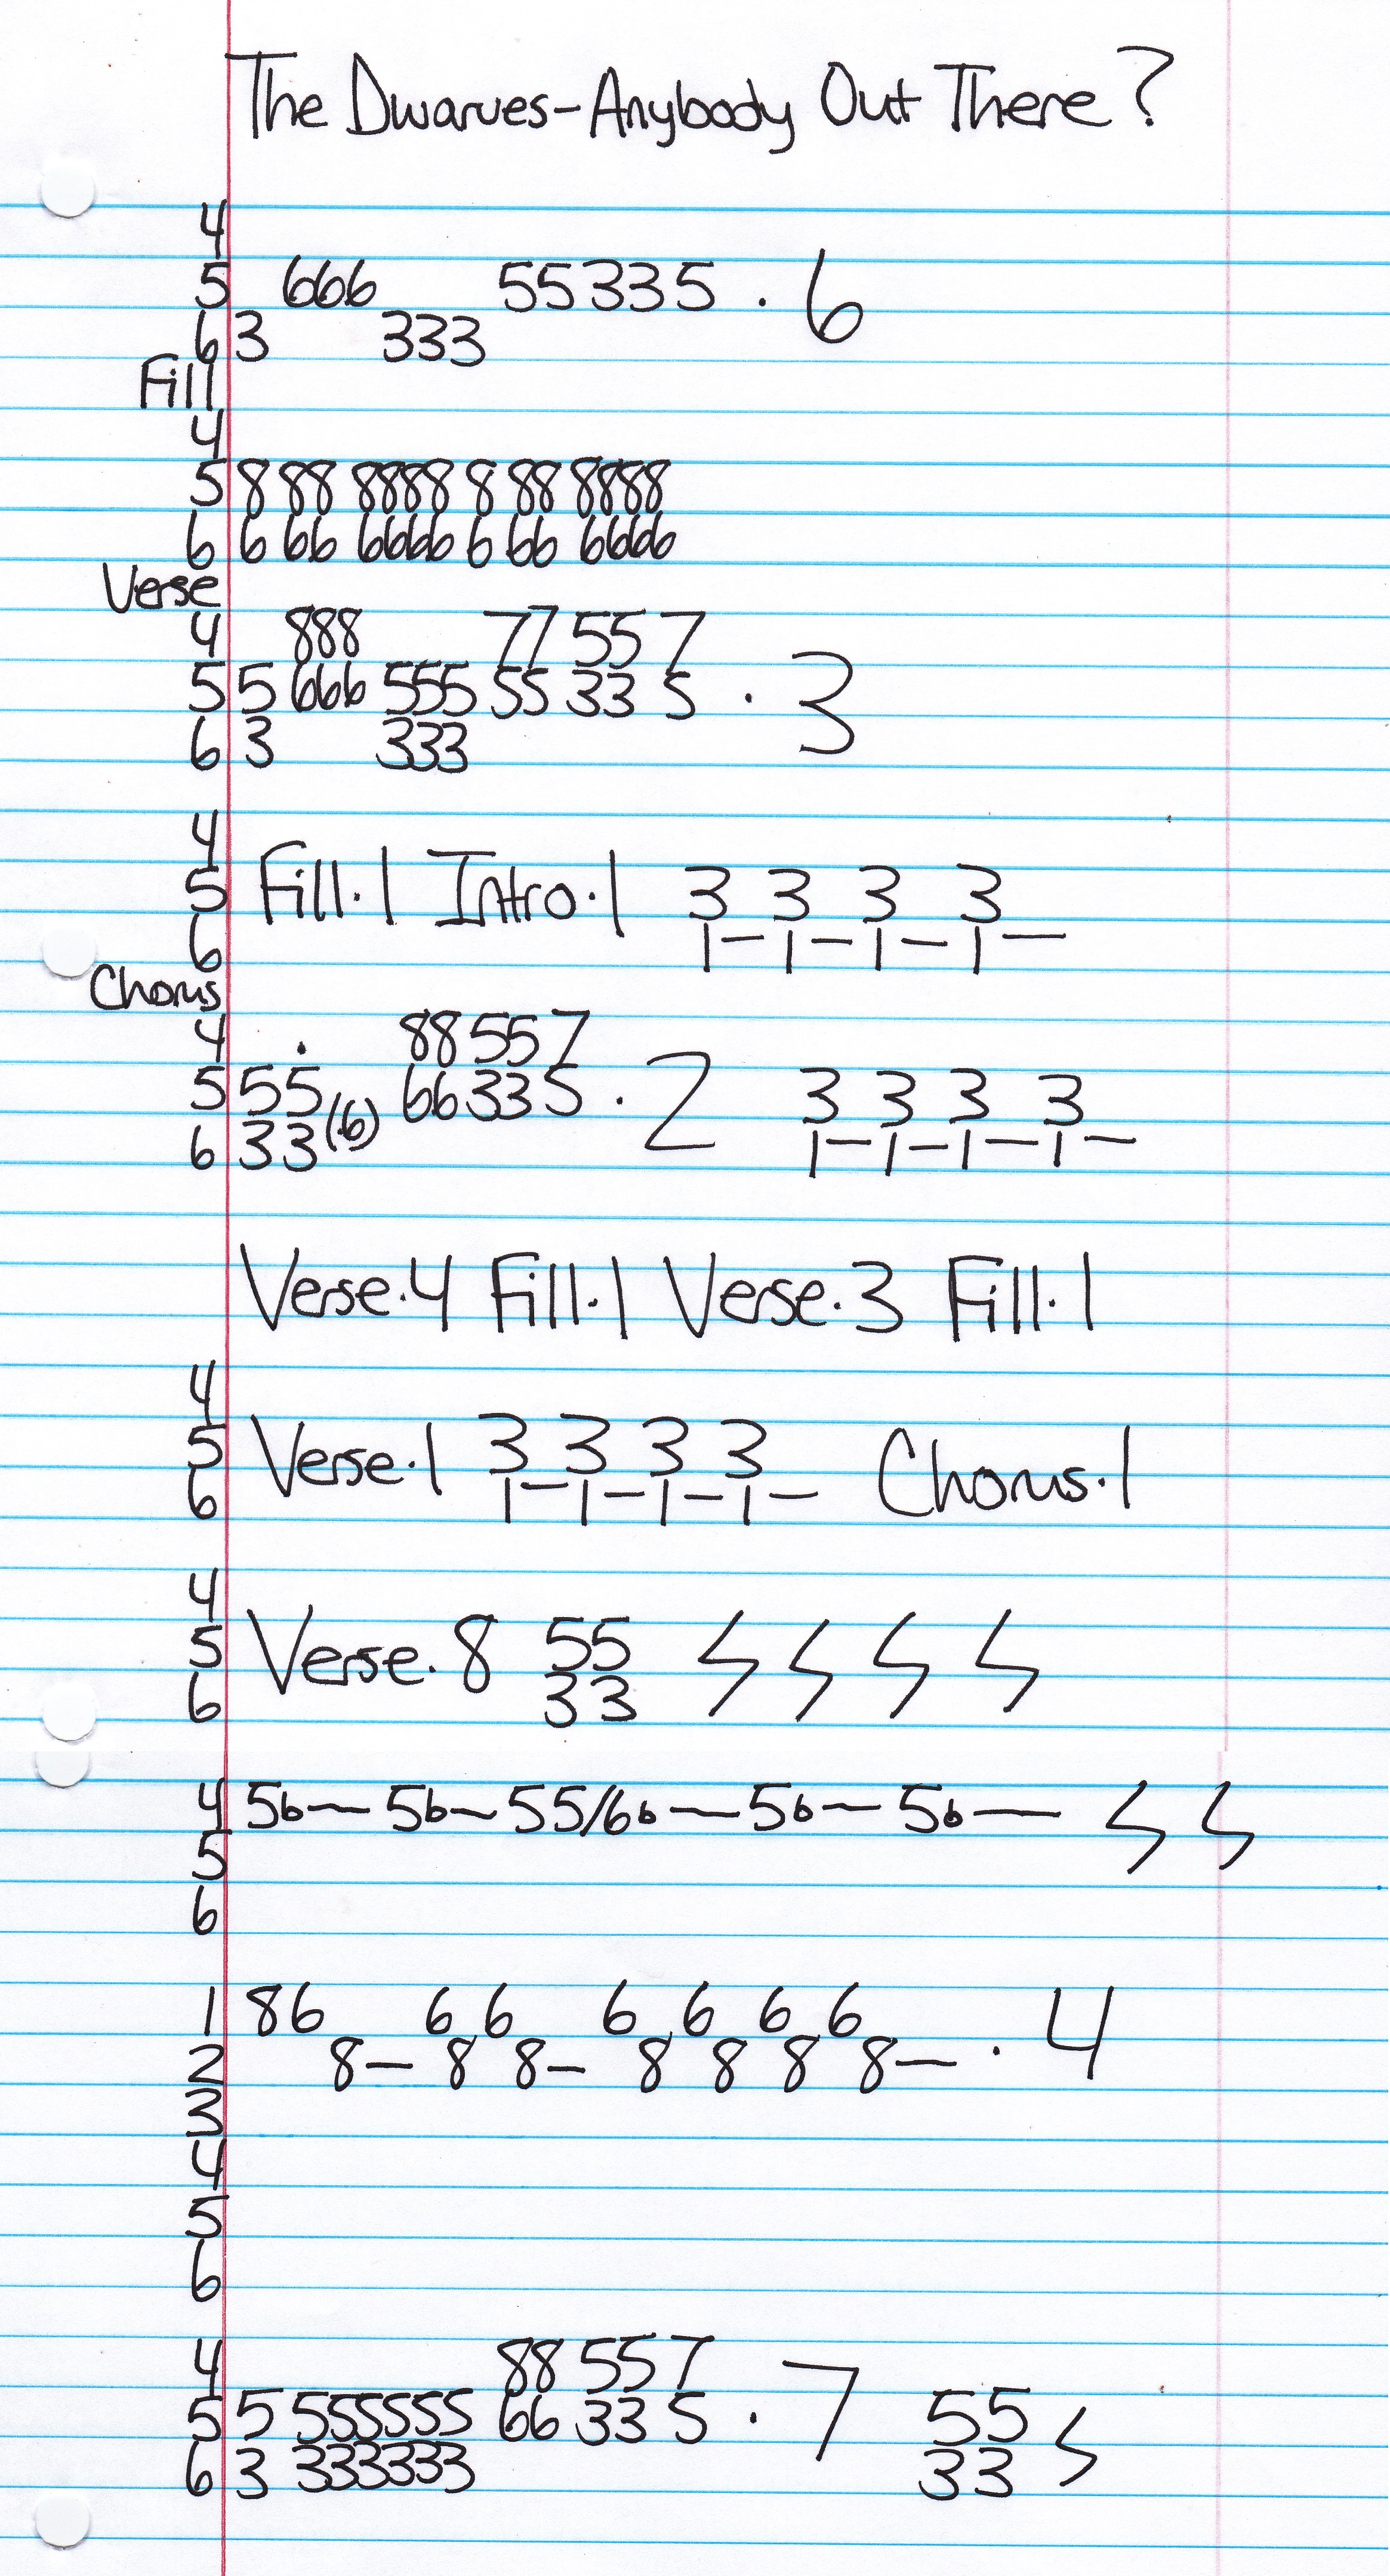 The Dwarves-Anybody Out There?
4
5 666 55335 . 6
6 3 333
Fill
4
5 8 88 8888 8 88 8888
6 6 66 6666 6 66 6666
Verse
4 888 77 55 7
5 5 666 555 55 33 5 . 3
6 3 333
4
5 Fill.1 Intro.1 3 3 3 3
6 1- 1- 1- 1-
Chorus
4 . 88557
5 55 66335 . 2 3 3 3 3
6 33 (.6) 1- 1- 1- 1-
Verse.4 Fill.1 Verse.3 Fill.1
4
5 Verse.1 3 3 3 3 Chorus.1
6 1- 1- 1- 1-
4
5 Verse.8 55
6 33
4 5b- 5b- 55/6b- 5b- 5b-
5
6
1 86 6 6 6 6 6 6
2 8- 8 8- 8 8 8 8- . 4
3
4
5
6
4 88 55 7
5 5 555555 66 33 5 . 7 55
6 3 333333 33